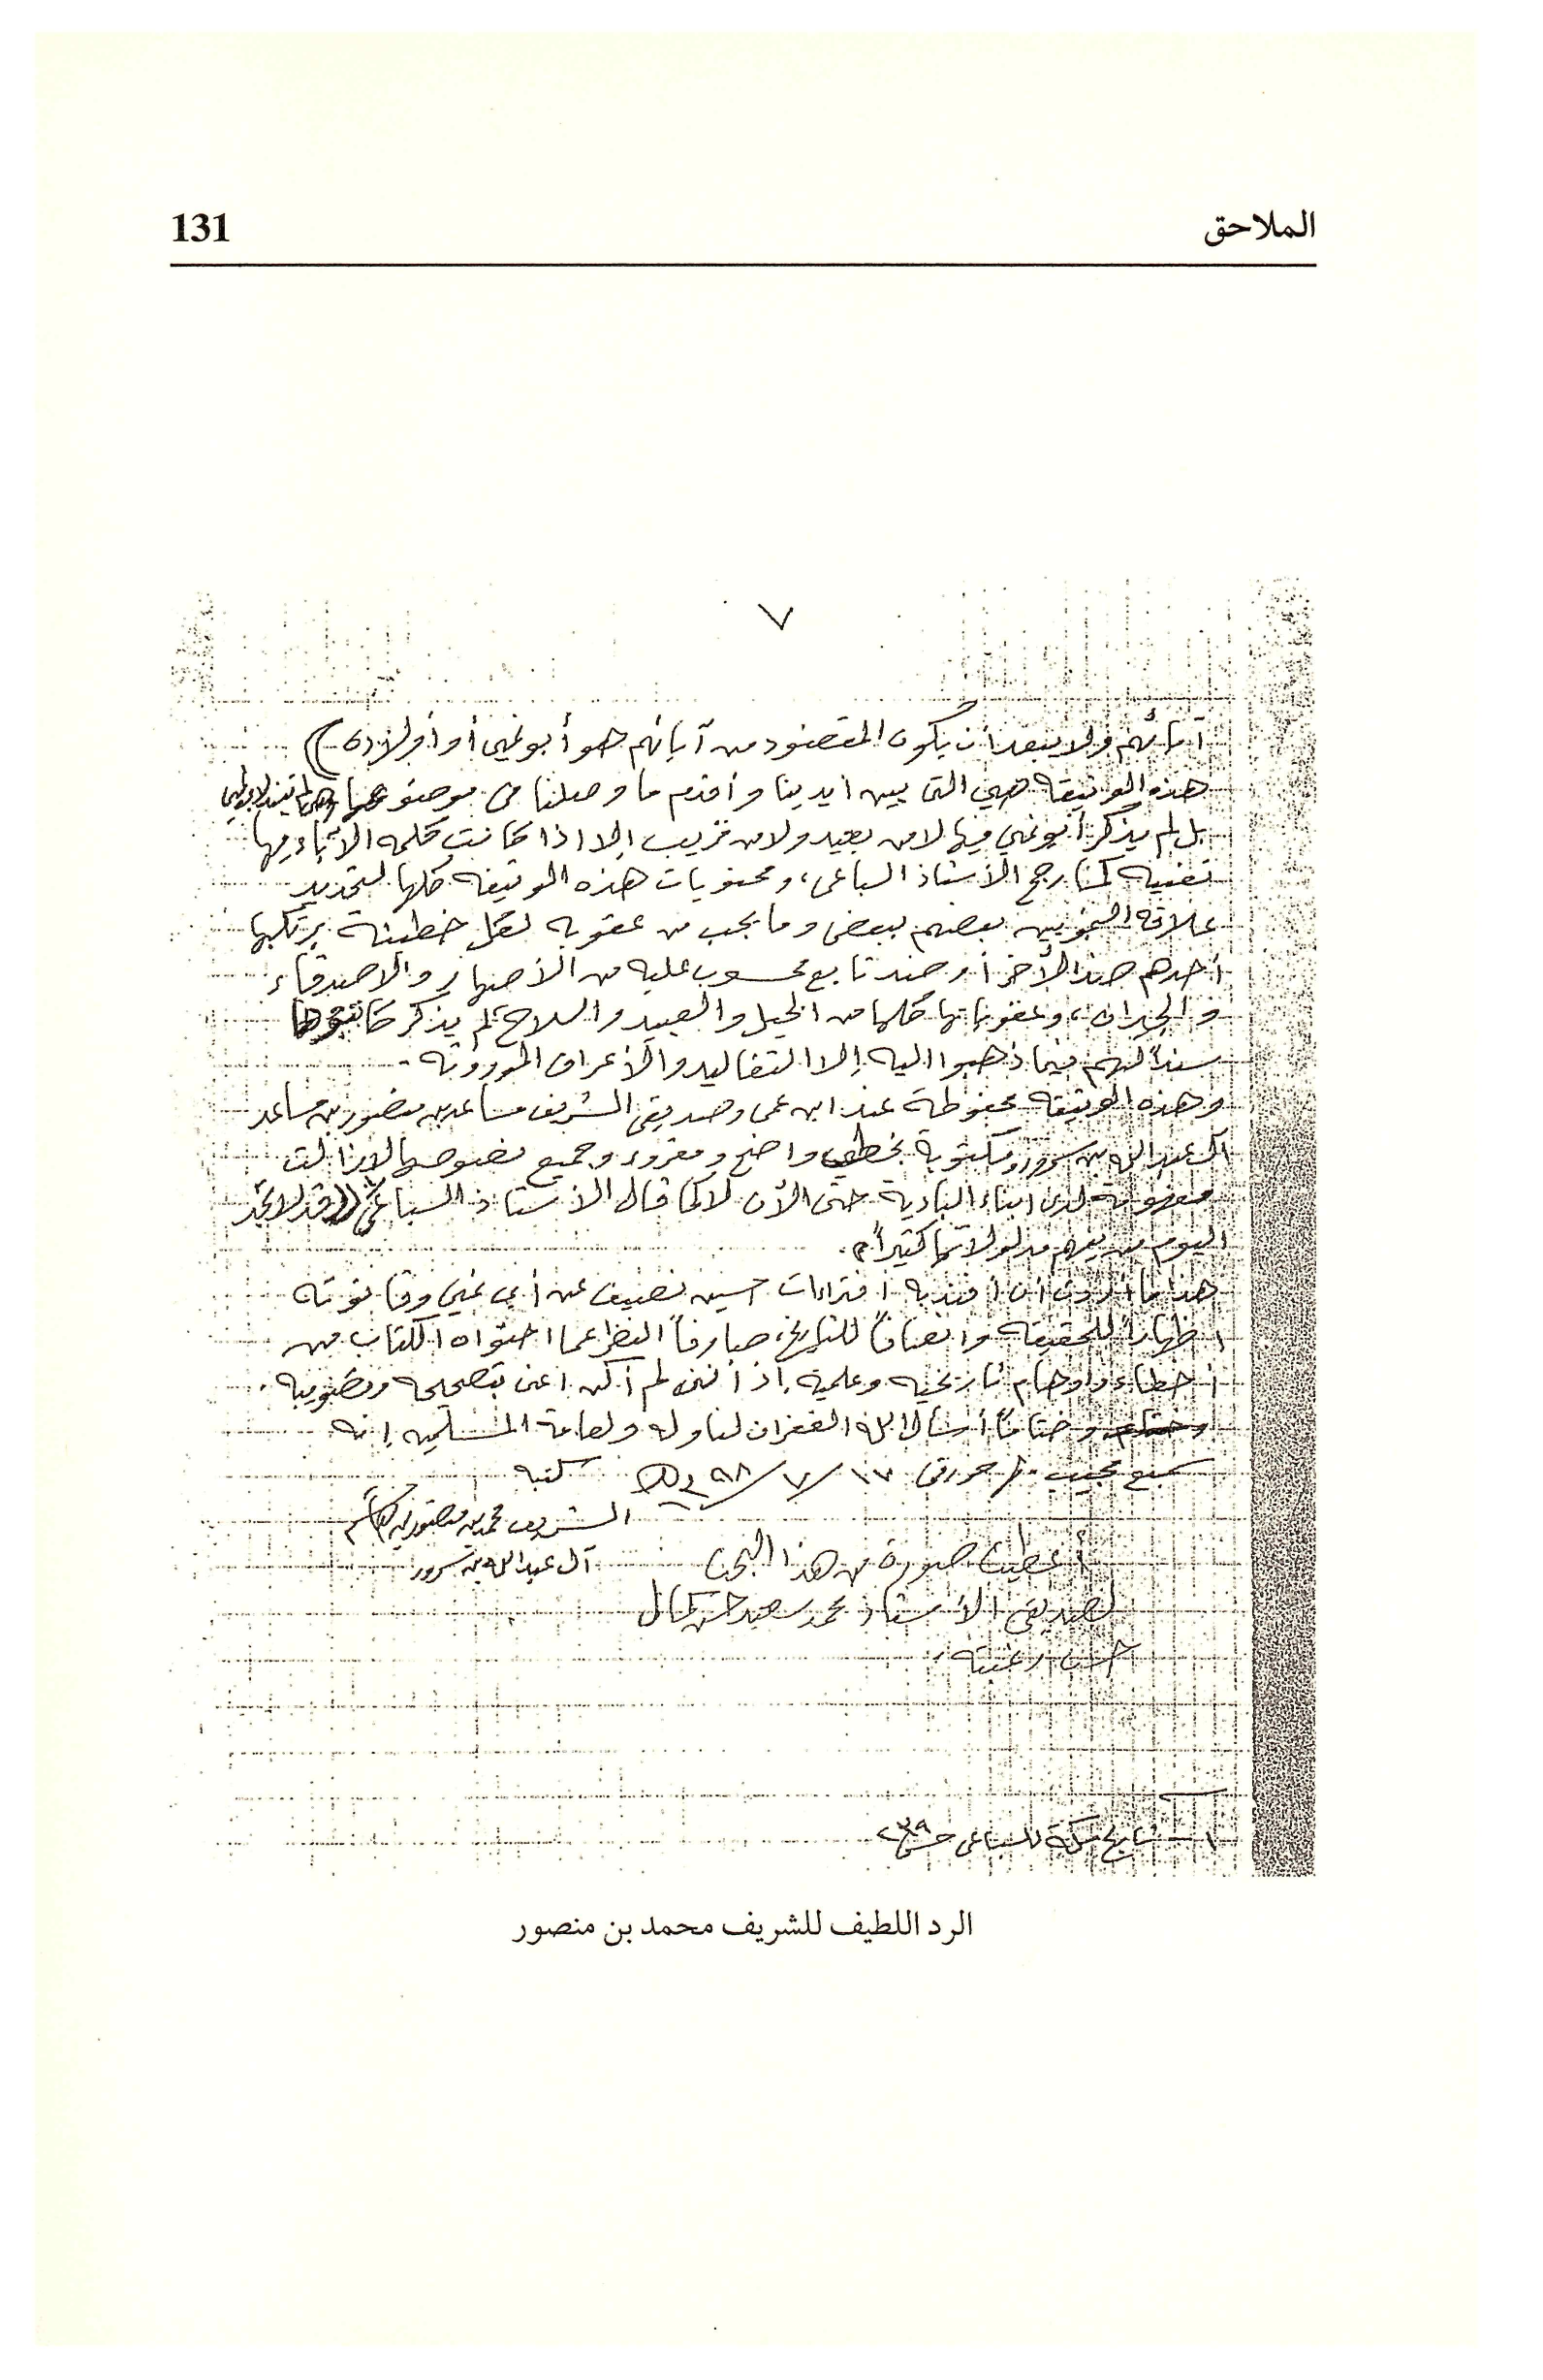 الملاحق 131
٧
آبائهم ولا يبعد أن يكون المقصود من آبائهم هو أبو نمي أو أولاده))
هذه الوثيقة هي التي بين ايدينا وأقدم ما وصلنا في موضوعها وهي لم تنسب لأبو نمي
بل لم يذكر أبو نمي فيها لا من بعيد ولا من قريب إلا اذا كانت كلمة الآباء فيها
تعنيه كما رجح الأستاذ السباعي، ومحتويات هذه الوثيقة كلها لتحديد
علاقة النمويين بعضهم ببعض وما يجب من عقوبه لكل خطيئة يرتكبها
أحدهم ضد الآخر أو ضد تابع محسوب عليه من الأصهار والأصدقاء
والجيران، وعقوباتها كلها من الخيل والعبيد والسلاح لم يذكر كاتبوها
سنداً لهم فيما ذهبوا اليه إلا التقاليد والأعراف الموروثة -
وهذه الوثيقه محفوظة عند ابن عمي وصديقي الشريف مساعد بن منصور بن مساعد
آل عبد الله بن سرور ومكتوبة بخط واضح ومقروء وجميع نصوصها لازالت
معروفة لدى ابناء البادية حتى الآن لا كما قال الأستاذ السباعي ((وقد لا تجد
اليوم من يفهم مدلولاتها كثيراً)).
هذا ما أردت أن أفند به افتراءات حسين نصيف عن أبي نمي وقانونه
اظهاراً للحقيقه وانصافاً للتاريخ، صارفاً النظر عما احتواه الكتاب من
أخطاء وأوهام تاريخيه وعلمية. اذ أنني لم أكن اعنى بتصحيحه وتصويبه.
وختاماً أسأل الله الغفران لنا وله ولعامة المسلمين إنه
سميع مجيب. حرر في ١٧/٧/٩٨ هـ كتبه
الشريف محمد بن منصور بن هاشم
آل عبد الله بن سرور
أعطيت صورة من هذا البحث
لصديقي الأستاذ محمد سعيد حسن كمال
حسب رغبته
١ - تاريخ مكة للسباعي ص ٣٩
الرد اللطيف للشريف محمد بن منصور